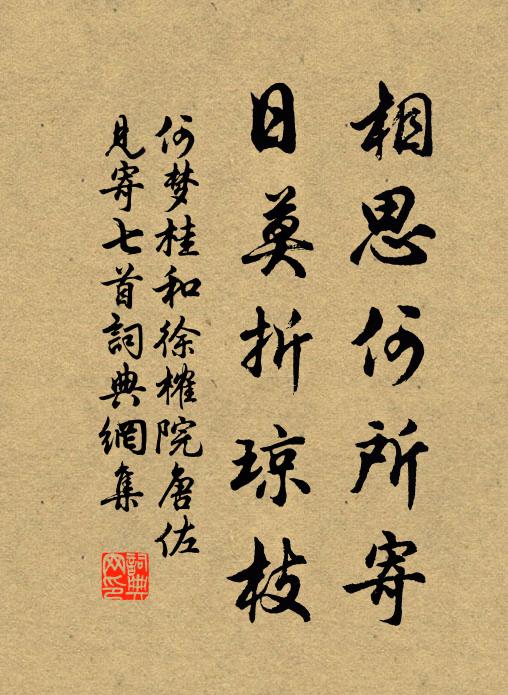 相思何所寄
日莫折琼枝
何梦桂和徐榷院唐佐
見寄七首詞典網集
詞典网印